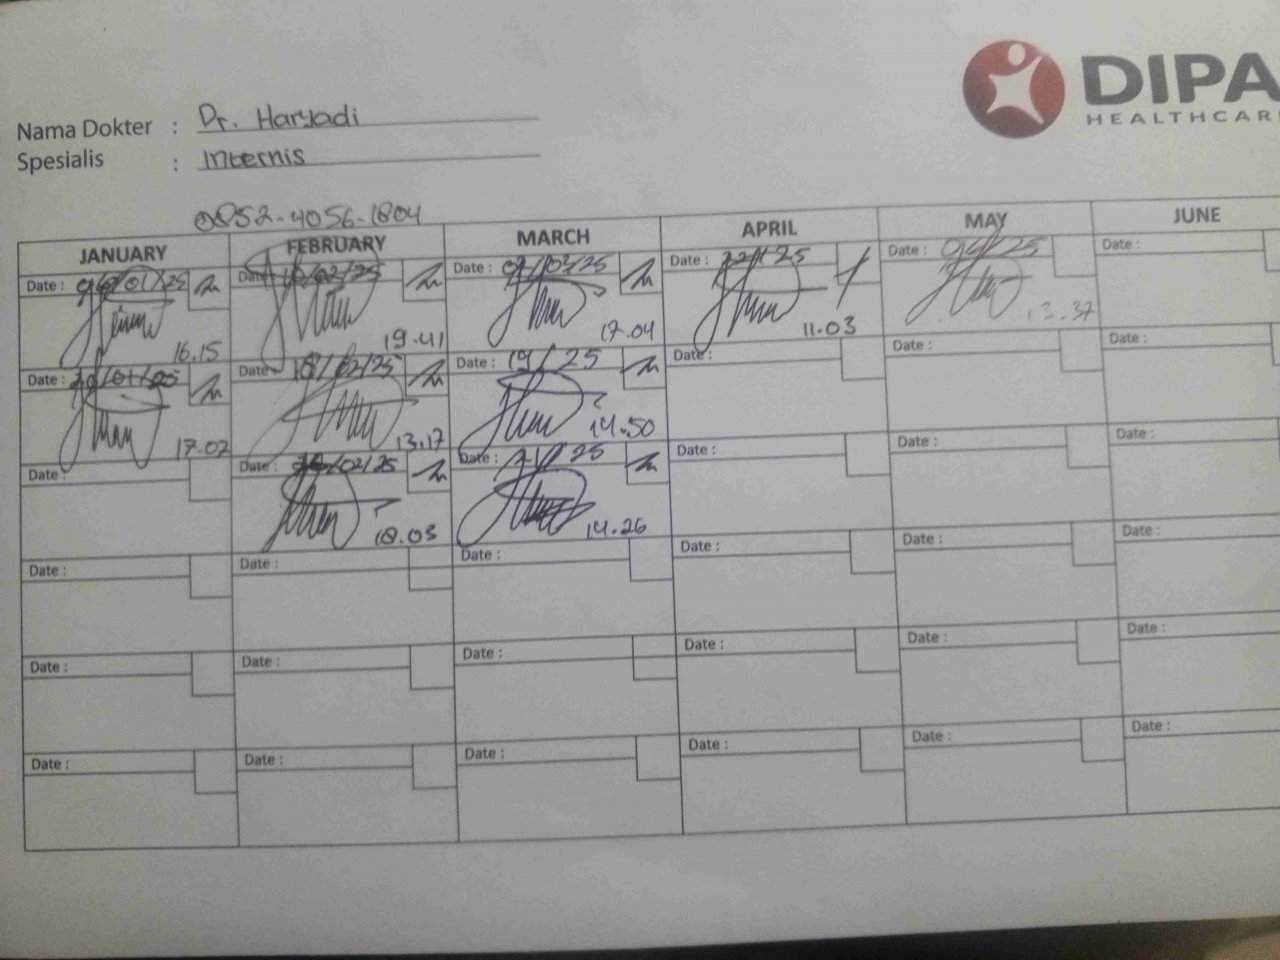 DIPA
HEALTHCAR
Nama Dokter : Dr. Haryadi
Spesialis : Internis
0852-4056-1804
JANUARY FEBRUARY MARCH APRIL MAY JUNE
Date : /01/25 Date : 10/02/25 Date : 07/03/25 Date : 22/ 25 Date : /25 Date :
16.15 19.41 17.04 11.03 13.37
Date : /01/25 Date : 18/02/25 Date : 19/ 25 Date : Date : Date :
17.02 13.17 14.50
Date : Date : /02/25 Date : 21/ 25 Date : Date : Date :
18.03 14.26
Date : Date : Date : Date : Date : Date :
Date : Date : Date : Date : Date : Date :
Date : Date : Date : Date : Date : Date :